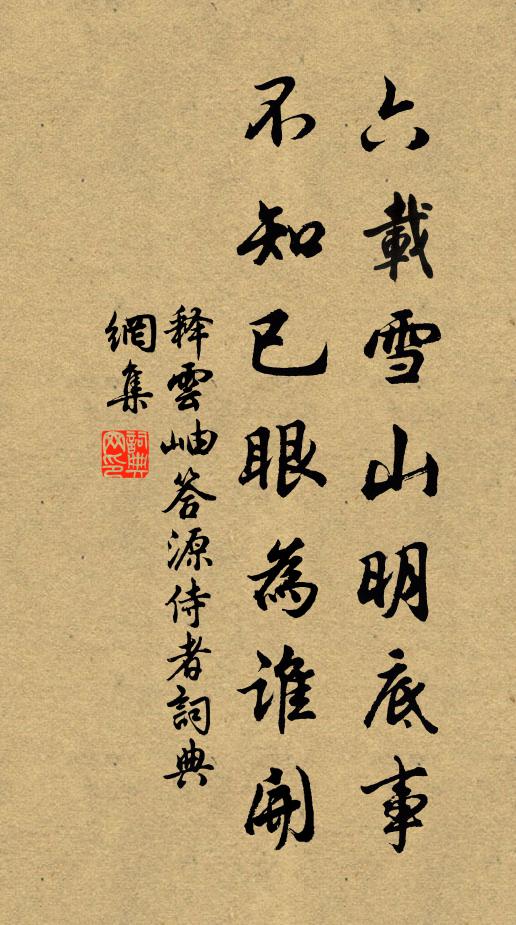 六載雪山明底事
不知已眼為誰開
释雲岫答源侍者詞典
網集
詞典
网印